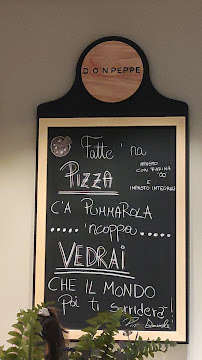 DON PEPPE
Fatte 'na
PIZZA
IMPASTO
CON FARINA
00
E
IMPASTO INTEGRALE
C'A PUMMAROLA
'ncoppa
VEDRAI
CHE IL MONDO
Poi ti sorriderà!
Pino